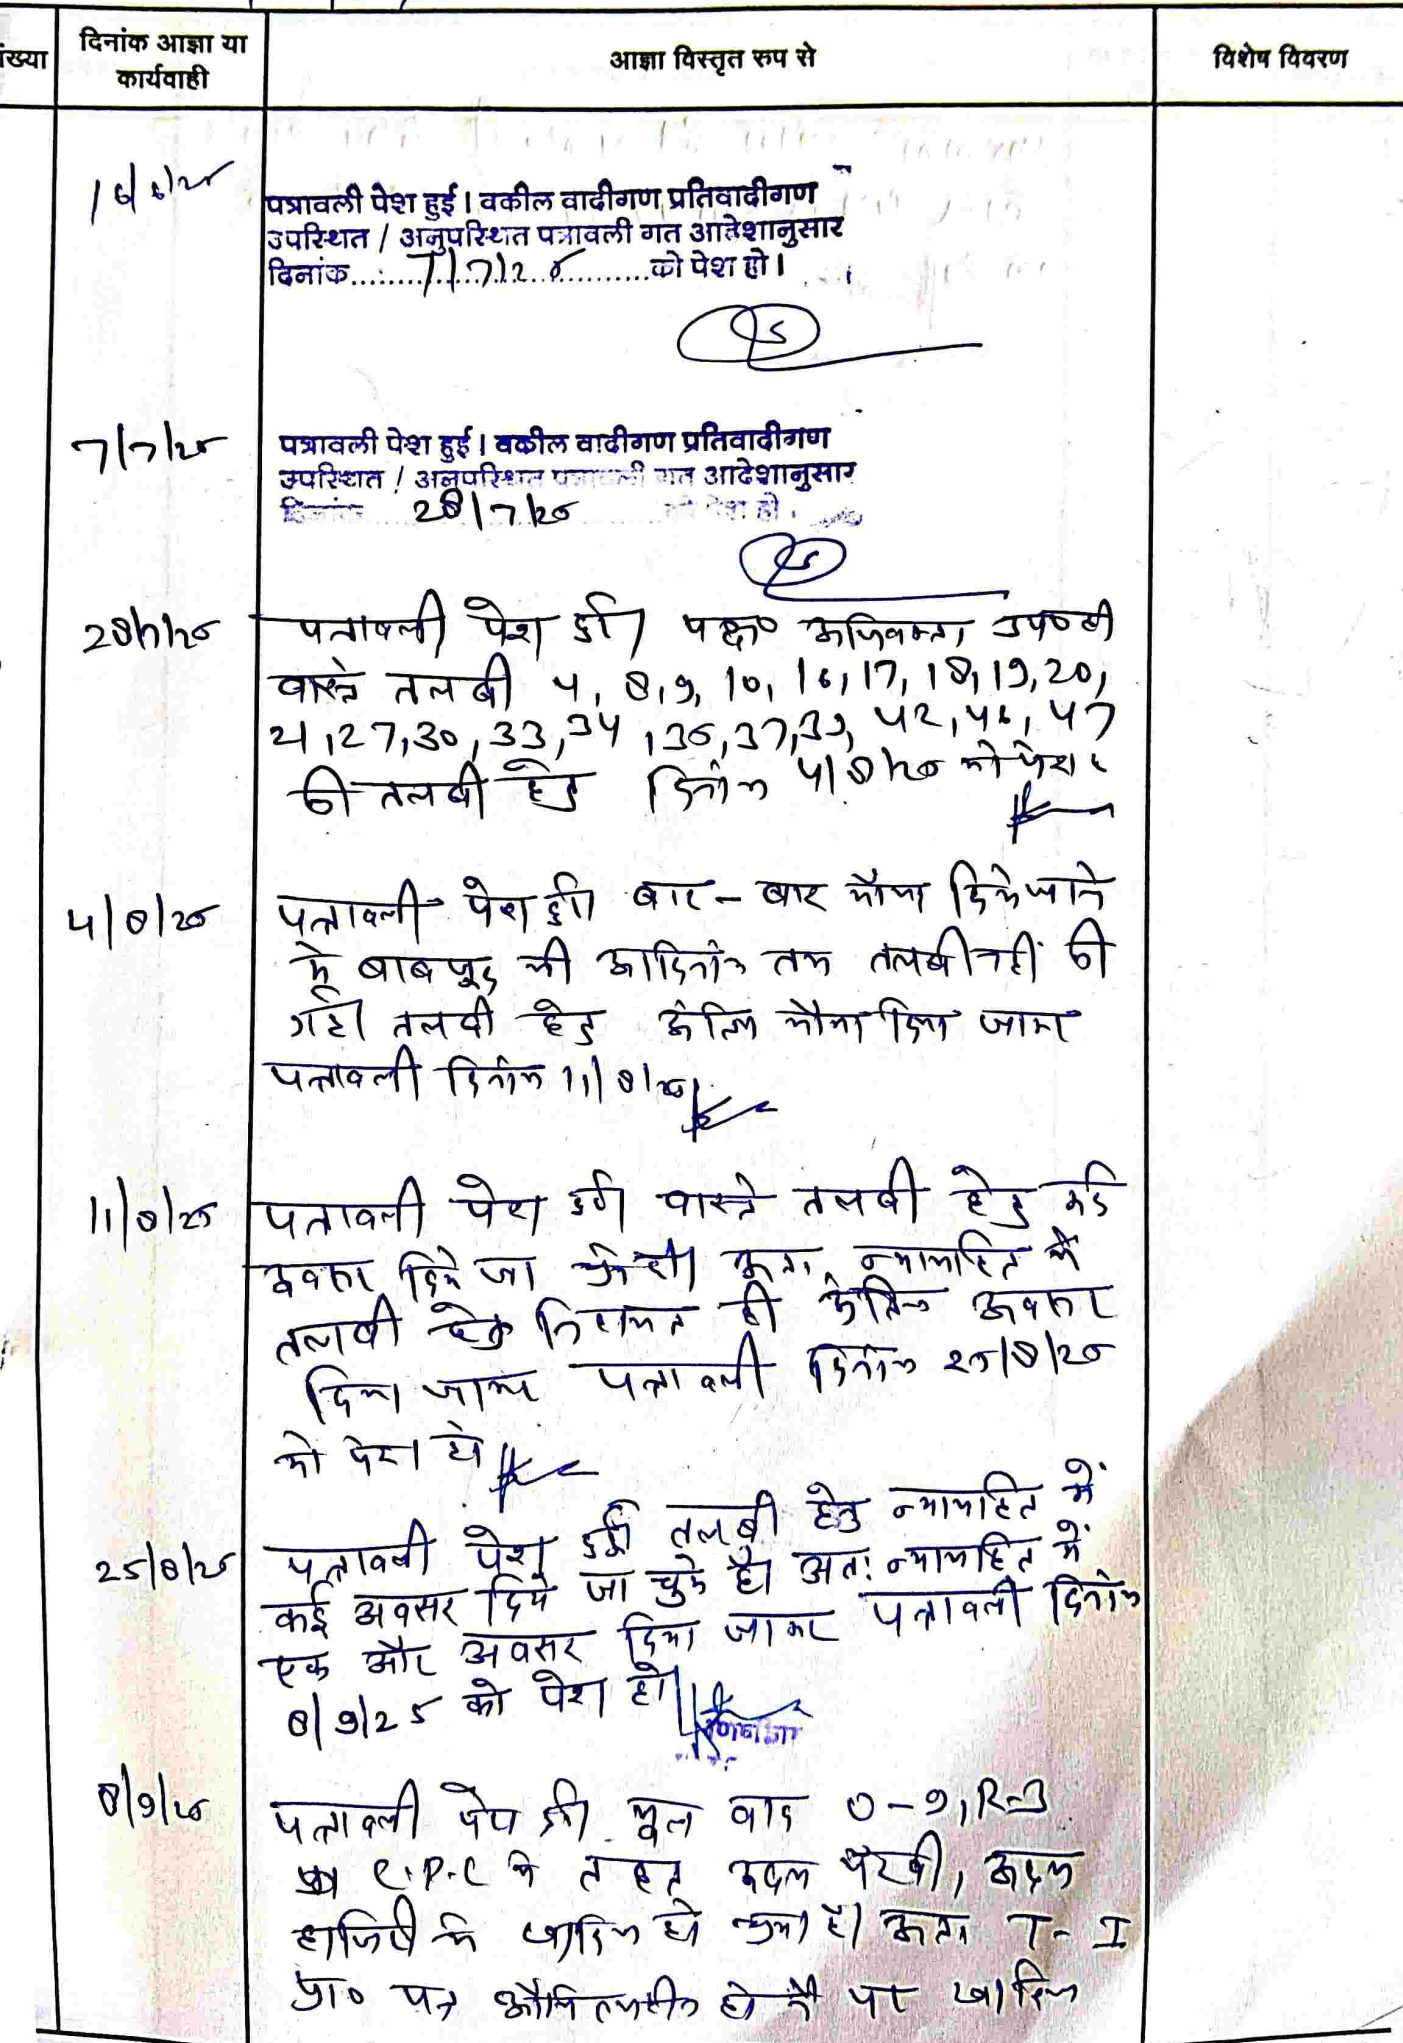 ंख्या
दिनांक आज्ञा या
कार्यवाही
आज्ञा विस्तृत रुप से
विशेष विवरण
16/6/25
पत्रावली पेश हुई। वकील वादीगण प्रतिवादीगण
उपस्थित / अनुपस्थित पत्रावली गत आदेशानुसार
दिनांक 7/7/25 को पेश हो।
7/7/25
पत्रावली पेश हुई। वकील वादीगण प्रतिवादीगण
उपस्थित / अनुपस्थित पत्रावली गत आदेशानुसार
दिनांक 28/7/25 को पेश हो।
28/7/25
पत्रावली पेश हुई। पक्ष० अधिवक्ता उप०
वास्ते तलबी 4, 8, 9, 10, 16, 17, 18, 19, 20,
21, 27, 30, 33, 34, 35, 37, 39, 42, 46, 47
की तलबी हेतु दिनांक 4/8/25 को पेश
4/8/25
पत्रावली पेश हुई। बार - बार मौका दिये जाने
के बावजूद भी आदिनांक तक तलबी नहीं की
गई। तलबी हेतु अंतिम मौका दिया जाकर
पत्रावली दिनांक 11/8/25
11/8/25
पत्रावली पेश हुई। वास्ते तलबी हेतु कई
अवसर दिये जा चुके है। अतः न्यायहित में
तलबी हेतु ही अंतिम अवसर
दिया जाकर पत्रावली दिनांक 25/8/25
को पेश हो
25/8/25
पत्रावली पेश हुई। तलबी हेतु न्यायहित में
कई अवसर दिये जा चुके है। अतः न्यायहित में
एक और अवसर दिया जाकर पत्रावली दिनांक
8/9/25 को पेश हो।
8/9/25
पत्रावली पेश हुई। मूल वाद O-9, R-3
C.P.C के तहत अदम पैरवी, अदम
हाजिरी में खारिज हो चुका है। अतः T-I
प्रा० पत्र औचित्यहीन होने पर खारिज